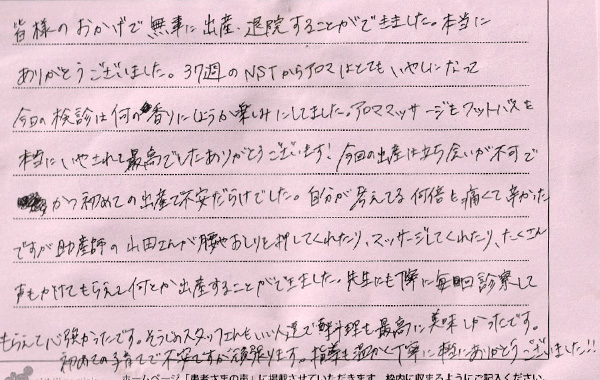 皆様のおかげで無事に出産、退院することができました。本当に
ありがとうございました。37週のNSTからアロマはとてもいやしになって
今回の検診は何の香りにしようか楽しみにしてました。アロママッサージもフットバスも
本当にいやされて最高でしたありがとうございます!今回の出産は立ち会いが不可で
かつ初めての出産で不安だらけでした。自分が考えてる何倍も痛くて辛かった
ですが助産師の山田さんが腰やおしりを押してくれたり、マッサージしてくれたり、たくさん
声もかけてもらえて何とか出産することができました。先生にも丁寧に毎回診察して
もらえて心強かったです。そうじのスタッフさんもいい人達で料理も最高に美味しかったです。
初めての子育てで不安ですが頑張ります。指導も温かく丁寧に本当にありがとうございました!!
ホームページ「患者さまの声」に掲載させていただきます。枠内に収まるようにご記入ください